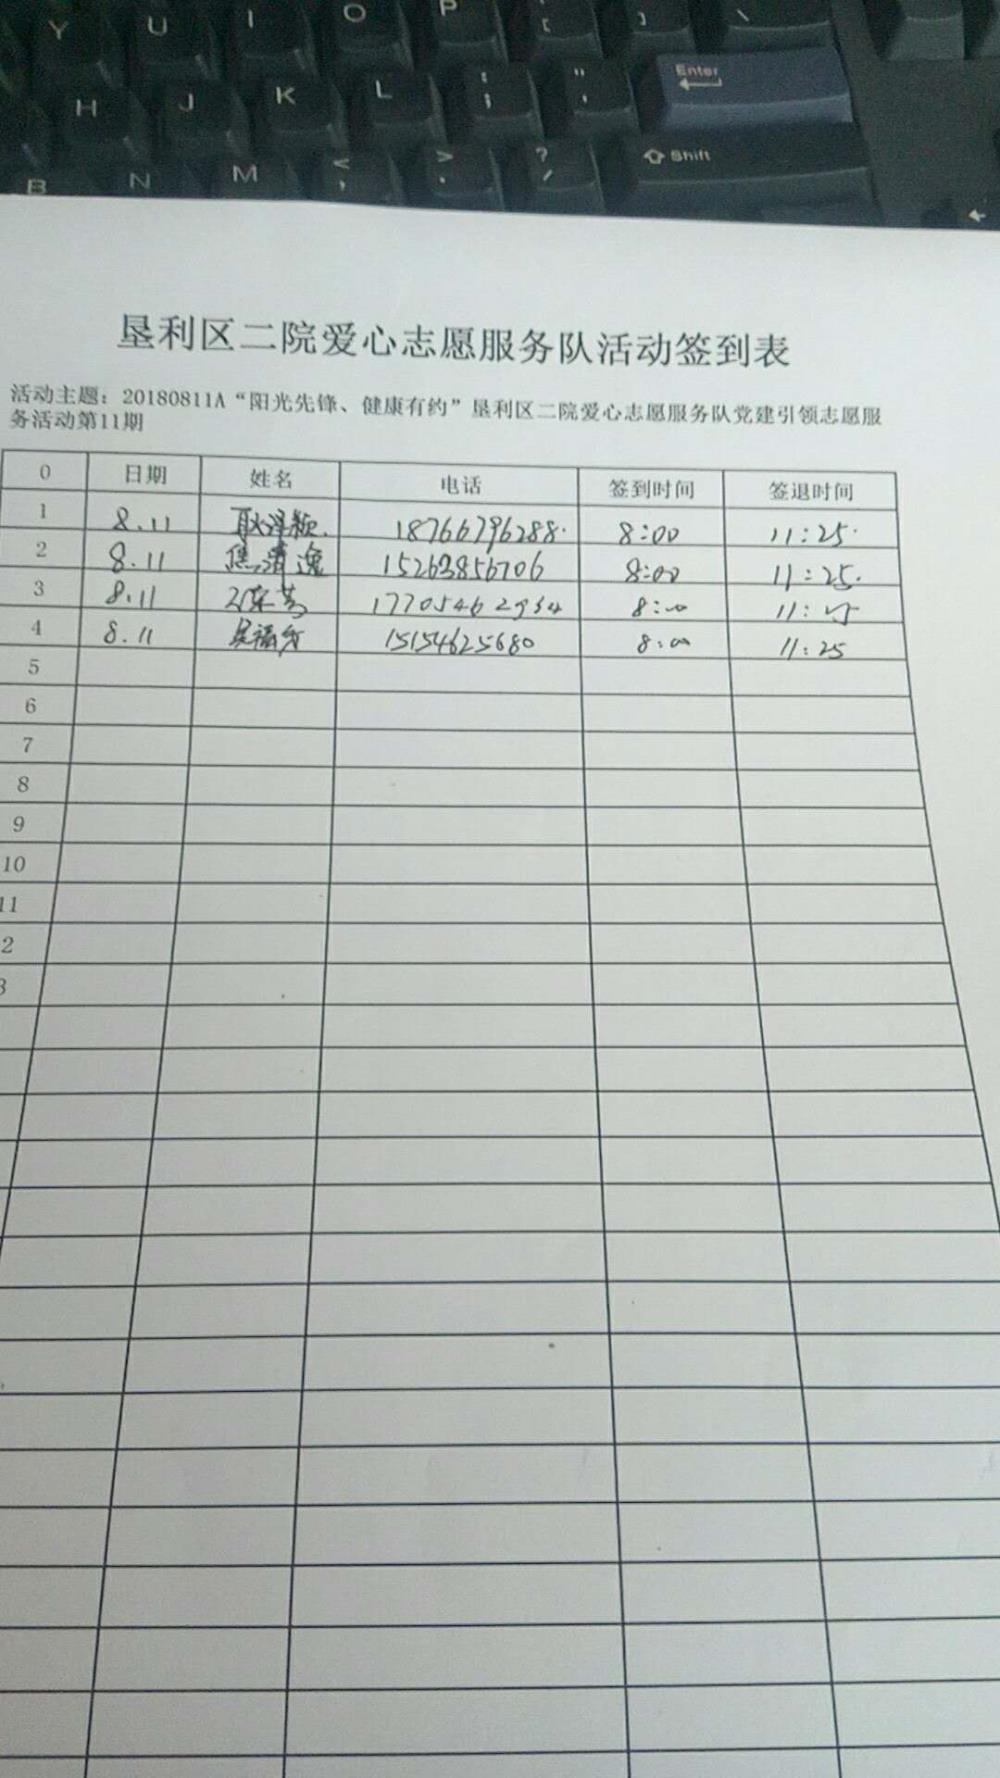 Y U I O P [ ] \
H J K L : ; " ' Enter
B N M < , > . ? / Shift
垦利区二院爱心志愿服务队活动签到表
活动主题：20180811A“阳光先锋、健康有约”垦利区二院爱心志愿服务队党建引领志愿服
务活动第11期
0 日期 姓名 电话 签到时间 签退时间
1 8.11 耿泽颖 18766796288 8:00 11:25
2 8.11 焦清逸 15263856706 8:00 11:25
3 8.11 17705462934 8:00 11:25
4 8.11 吴福 15154625680 8:00 11:25
5
6
7
8
9
10
11
2
3